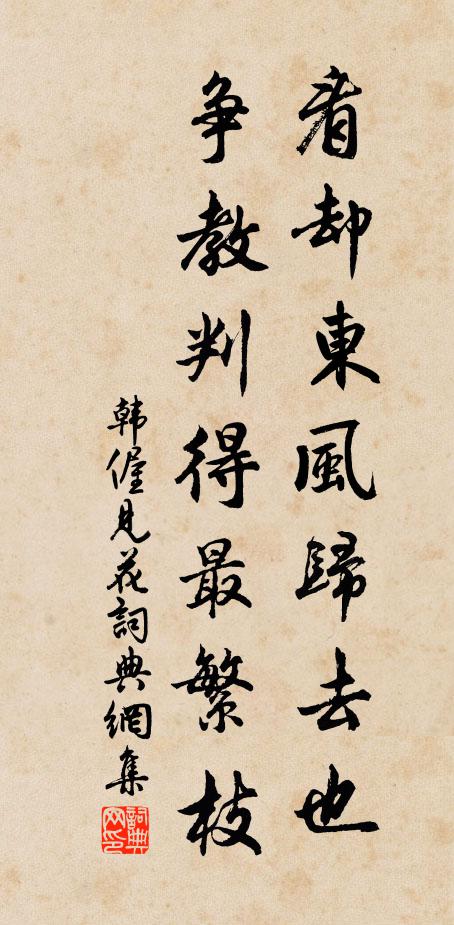 看却東風歸去也
争教判得最繁枝
韩偓見花詞典網集
詞典網印